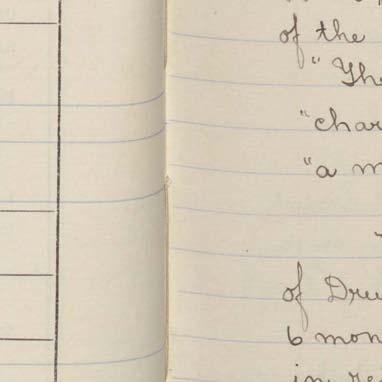 of the
"The
"char
"a m
of Dru
6 mon
in re